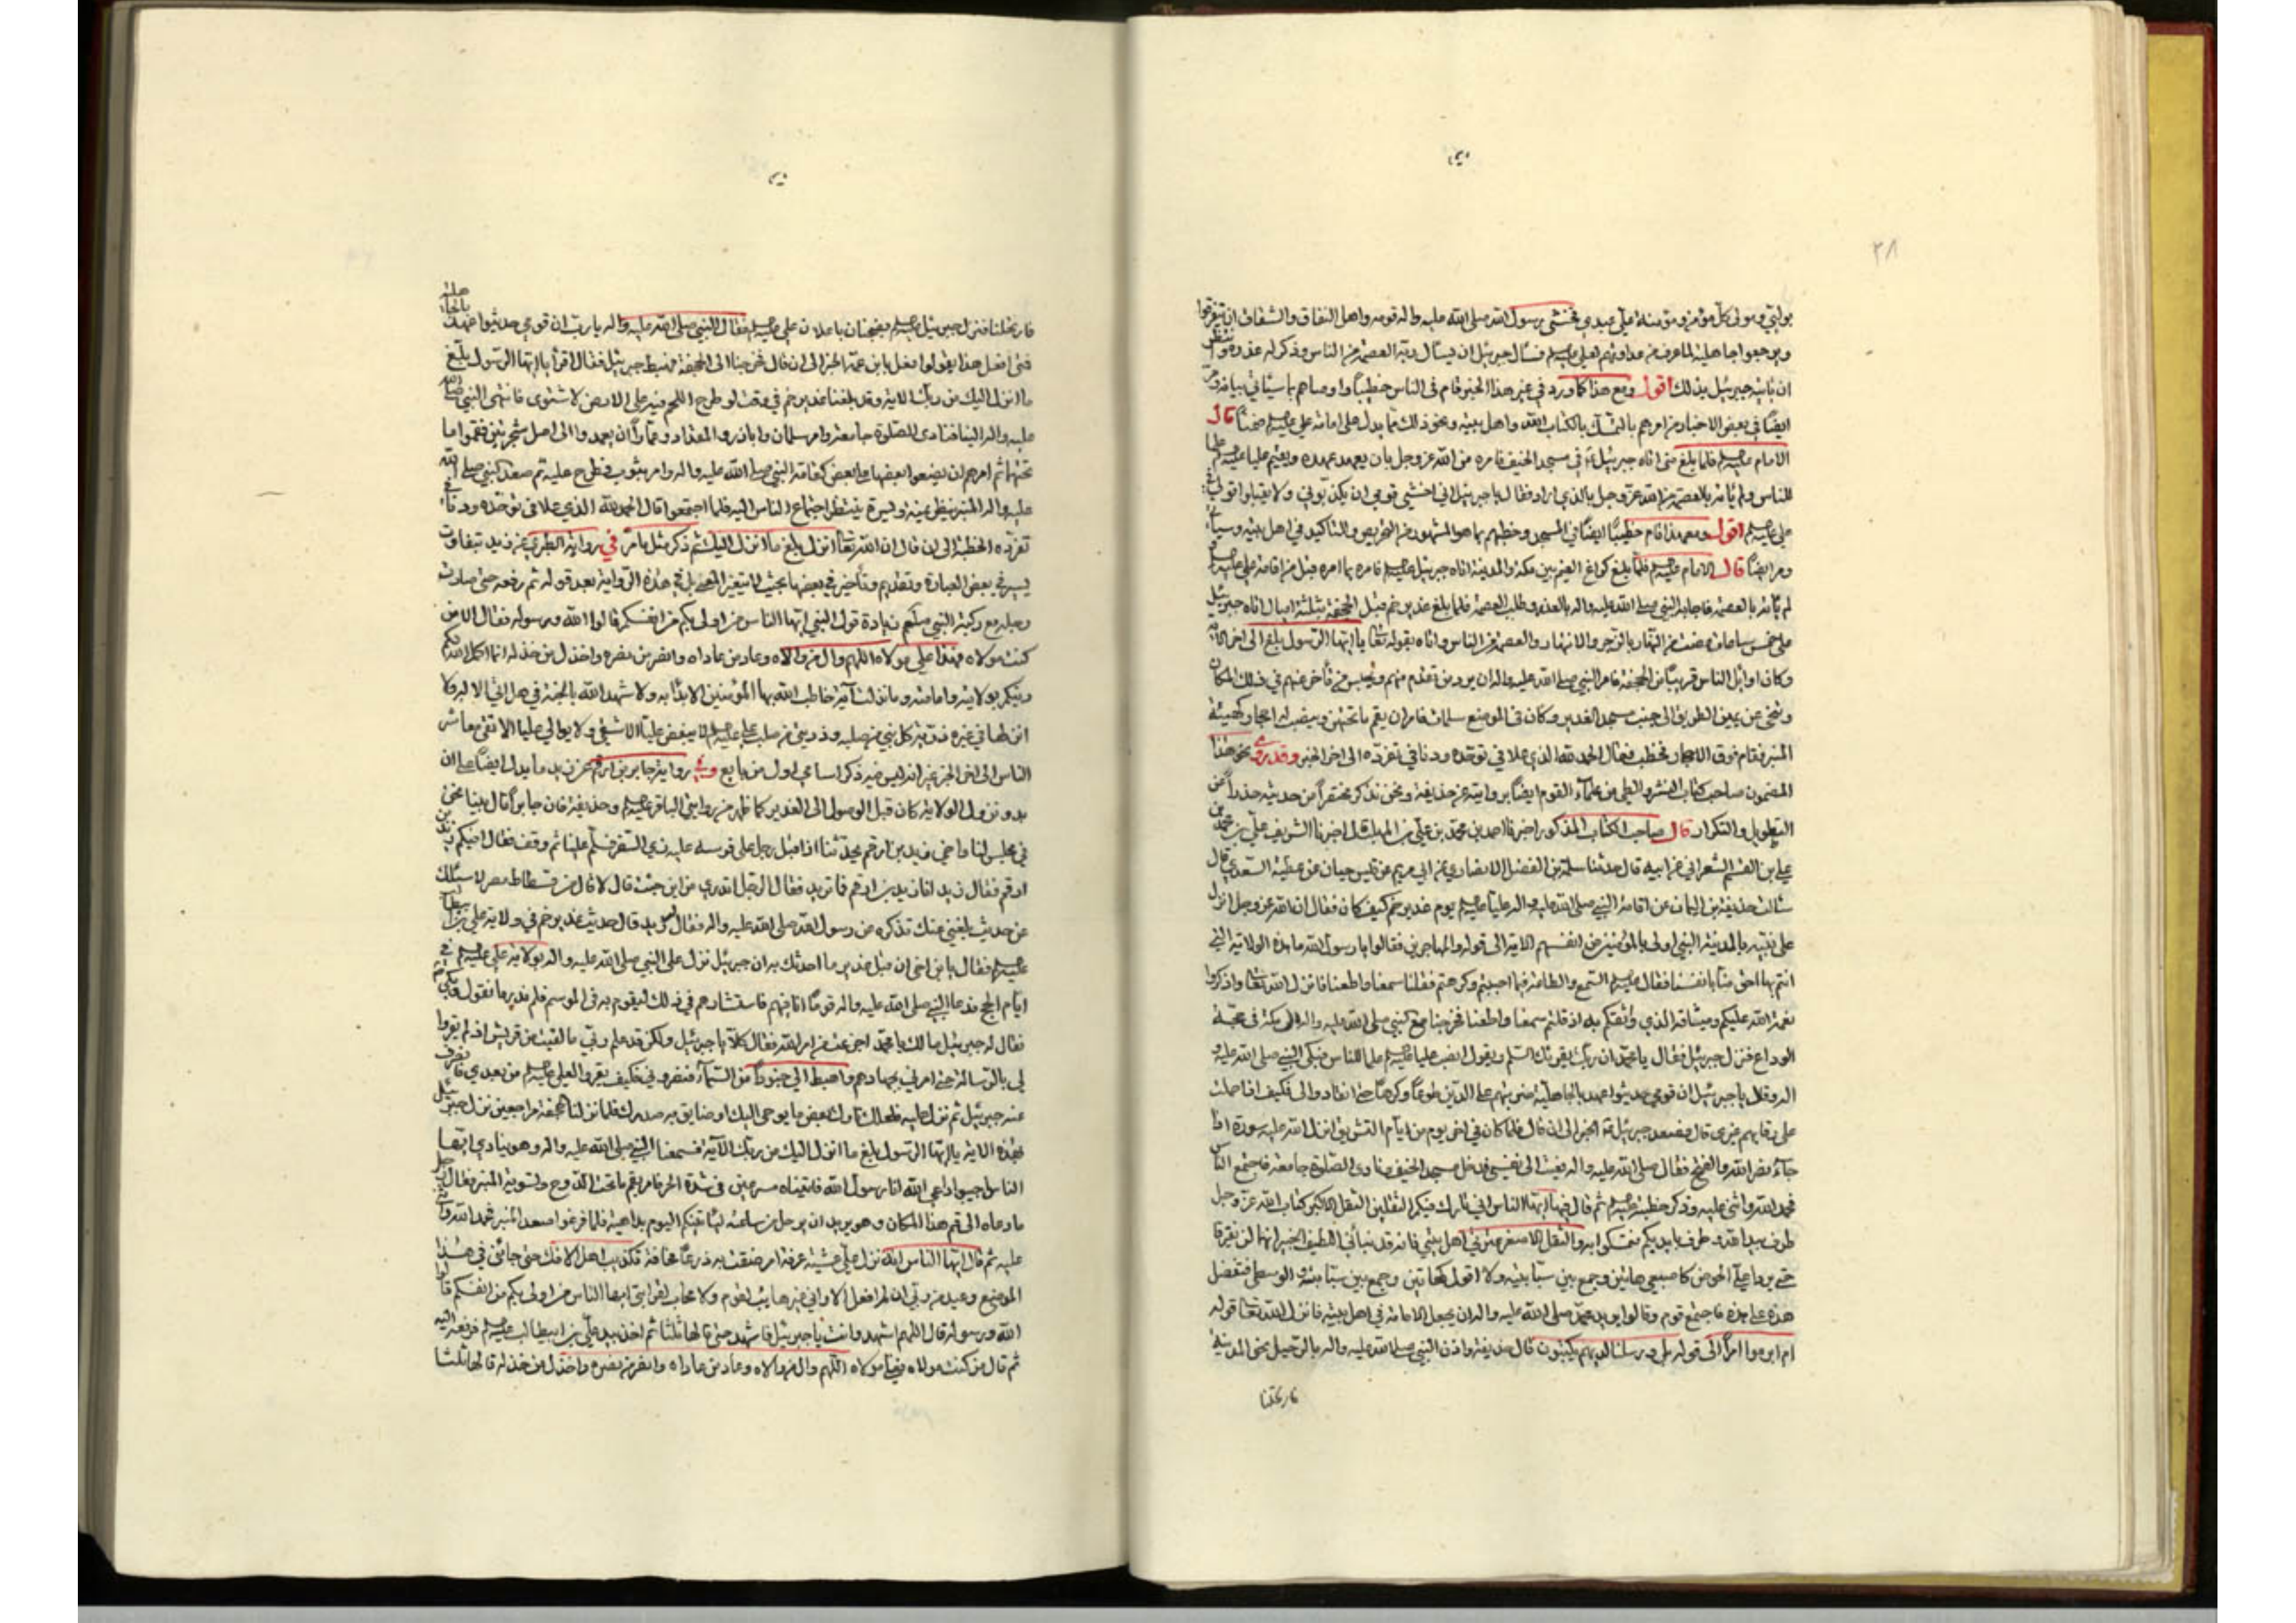 ٢٨
بولايتي ومولى كل مؤمن ومؤمنة علي عبدي فخشى رسول الله صلى الله عليه واله قومه واهل النفاق والشقاق ان يتفرقوا
ويرجعوا جاهلية لما عرف من عداوتهم لعلي فسأل جبرئيل ان يسأل ربه العصمة من الناس وذكر له عذره وانتظر
ان يأتيه جبرئيل بذلك اقول ومع هذا كما ورد في غير هذا الخبر قام في الناس خطيبا واوصاهم بما سيأتي بيانه ومر
ايضا في بعض الاخبار من امرهم بالتمسك بالكتاب الله واهل بيته ونحو ذلك مما يدل على امامة علي ضمنا قال
الامام فلما بلغ منى اتاه جبرئيل في مسجد الخيف فامره من الله عز وجل بان يعهد عهده ويقيم عليا علما
للناس ولم يأته بالعصمة من الله عز وجل بالذي اراد فقال يا جبرئيل اني اخشى قومي ان يكذبوني ولا يقبلوا قولي في
علي اقول ومع هذا قام خطيبا ايضا في المسجد وخطبهم بما هو المشهور من التحريص والتاكيد في اهل بيته وسيأتي
ومر ايضا قال الامام فلما بلغ كراع الغميم بين مكة والمدينة اتاه جبرئيل فامره بما امره قبل من اقامة علي
لم يأته بالعصمة فاجابه النبي صلى الله عليه واله بالعذر وطلب العصمة فلما بلغ غدير خم قبل الجحفة بثلثة اميال اتاه جبرئيل
على خمس ساعات مضت من النهار بالزجر والانتهار والعصمة من الناس واتاه بقوله تعالى يا ايها الرسول بلغ الى اخر الآية
وكان اوائل الناس قريبا من الجحفة فامر النبي صلى الله عليه واله ان يرد من تقدم منهم ويحبس من تأخر عنهم في ذلك المكان
وتنحى عن يمين الطريق الى جنب مسجد الغدير وكان في الموضع سلمات فامر ان يقم ما تحتهن وينصب له احجار كهيئة
المنبر فقام فوق الاحجار فخطب فقال الحمد لله الذي علا في توحده ودنا في تفرده الى اخر الخبر وقد روى نحو هذا
المضمون صاحب كتاب النشر والطي من علماء القوم ايضا برواية عن حذيفة ونحن نذكر مختصرا من حديثه حذرا من
التطويل والتكرار قال صاحب الكتاب المذكور اخبرنا احمد بن محمد بن علي بن المهلب قال اخبرنا الشريف علي بن محمد بن
علي بن القسم الشعراني عن ابيه قال حدثنا سلمة بن الفضل الانصاري عن ابي مريم عن قيس حيان عن عطية السعدي قال
سالت حذيفة بن اليمان عن اقامة النبي صلى الله عليه واله عليا يوم غدير خم كيف كان فقال ان الله عز وجل انزل
على نبيه بالمدينة النبي اولى بالمؤمنين من انفسهم الاية الى قوله والمهاجرين فقالوا يا رسول الله ما هذه الولاية التي
انتم بها احق منا بانفسنا فقال السمع والطاعة فيما احببتم وكرهتم فقلنا سمعنا واطعنا فانزل الله تعالى واذكروا
نعمة الله عليكم وميثاقه الذي واثقكم به اذ قلتم سمعنا واطعنا فخرجنا مع النبي صلى الله عليه واله الى مكة في حجة
الوداع فنزل جبرئيل فقال يا محمد ان ربك يقرئك السلم ويقول انصب عليا علما للناس فبكى النبي صلى الله عليه و
اله وقال يا جبرئيل ان قومي حديثوا عهد بالجاهلية ضربتهم على الدين طوعا وكرها حتى انقادوا لي فكيف اذا حملت
على رقابهم غيري قال فصعد جبرئيل الخبر الى ان قال فلما كان في اخر يوم من ايام التشريق انزل الله عليه سورة اذا
جاء نصر الله والفتح فقال صلى الله عليه واله نعيت الى نفسي فدخل مسجد الخيف فنادى الصلوة جامعة فاجتمع الناس
فحمد الله واثنى عليه وذكر خطبته ثم قال فيها ايها الناس اني تارك فيكم الثقلين الثقل الاكبر كتاب الله عز وجل
طرف بيد الله وطرف بايديكم فتمسكوا به والثقل الاصغر عترتي اهل بيتي فانه قد نبأني اللطيف الخبير انهما لن يفترقا
حتى يردا علي الحوض كاصبعي هاتين وجمع بين سبابتيه ولا اقول كهاتين وجمع بين سبابته والوسطى فتفضل
هذه على هذه فاجتمع قوم وقالوا يريد محمد صلى الله عليه واله ان يجعل الامامة في اهل بيته فانزل الله تعالى قوله
ام ابرموا امرا الى قوله بلى ورسلنا لديهم يكتبون قال حذيفة واذن النبي صلى الله عليه واله بالرحيل نحو المدينة
فارتحلنا
فارتحلنا فنزل جبرئيل بضجنان باعلان علي فقال النبي صلى الله عليه واله يا رب ان قومي حديثوا عهد بالجاهلية
فمتى افعل هذا يقولوا فعل بابن عمه الخبر الى ان قال فخرجنا الى الجحفة فهبط جبرئيل فقال اقرأ يا ايها الرسول بلغ
ما انزل اليك من ربك الاية وقد بلغنا غدير خم في وقت لو طرح اللحم فيه على الارض لاشتوى فانتهى النبي صلى الله
عليه واله الينا فنادى الصلوة جامعة وامر سلمان وابا ذر والمقداد وعمارا ان يعمدوا الى اصل شجرتين فقموا ما
تحتهما ثم امرهم ان يضعوا بعضها على بعض كقامة النبي صلى الله عليه واله وامر بثوب فطرح عليه ثم صعد النبي صلى الله
عليه واله المنبر ينظر يمنة ويسرة ينتظر اجتماع الناس اليه فلما اجتمعوا قال الحمد لله الذي علا في توحده ودنا في
تفرده الخطبة الى ان قال ان الله تعالى انزل بلغ ما انزل اليك ثم ذكر مثل ما مر في رواية الطبري عن زيد بتفاوت
يسير في بعض العبارة وتقديم وتأخير في بعضها بحيث لا يتغير المعنى بل في هذه الرواية بعد قوله ثم رفعه حتى صارت
رجله مع ركبة النبي صلعم زيادة قول النبي ايها الناس من اولى بكم من انفسكم قالوا الله ورسوله فقال الا من
كنت مولاه فهذا علي مولاه اللهم وال من والاه وعاد من عاداه وانصر من نصره واخذل من خذله انما اكمل الله لكم
دينكم بولايته وامامته وما نزلت آية خاطب الله بها المؤمنين الا بدأ به ولا شهد الله بالجنة في هل اتى الا له ولا
انزلها في غيره ذرية كل نبي من صلبه وذريتي من صلب علي لا يبغض عليا الا شقي ولا يوالي عليا الا تقي معاشر
الناس الى اخر الخبر غير انه ليس فيه ذكر اسامي اول من بايع وفي رواية جابر بن ارقم عن زيد ما يدل ايضا على ان
بدو نزول الولاية كان قبل الوصول الى الغدير كما ظهر من روايتي الباقر وحذيفة فان جابرا قال بينا نحن
في مجلس لنا واخي زيد بن ارقم يحدثنا اذ اقبل رجل على فرسه عليه زي السفر فسلم علينا ثم وقف فقال افيكم زيد بن
ارقم فقال زيد انا زيد بن ارقم فما تريد فقال الرجل اتدري من اين جئت قال لا قال من فسطاط مصر لاسئلك
عن حديث بلغني عنك تذكره عن رسول الله صلى الله عليه واله فقال زيد قال حديث غدير خم في ولاية علي بن ابيطالب
فقال يا بن اخي ان قبل غدير ما احدثك به ان جبرئيل نزل على النبي صلى الله عليه واله بولاية علي في
ايام الحج فدعا النبي صلى الله عليه واله قوما انا فيهم فاستشارهم في ذلك ليقوم به في الموسم فلم ندر ما نقول وبكى
فقال له جبرئيل ما لك يا محمد اجزعت من امر الله فقال كلا يا جبرئيل ولكن قد علم ربي ما لقيت من قريش اذ لم يقروا
لي بالرسالة حتى امرني بجهادهم واهبط الي جنودا من السماء فنصروني فكيف يقروا لعلي من بعدي فانصرف
عنه جبرئيل ثم نزل عليه فلعلك تارك بعض ما يوحى اليك وضائق به صدرك فلما نزلنا الجحفة راجعين نزل جبرئيل
بهذه الاية يا ايها الرسول بلغ ما انزل اليك من ربك الآية فسمعنا النبي صلى الله عليه واله وهو ينادي ايها
الناس اجيبوا داعي الله انا رسول الله فاتيناه مسرعين في شدة الحر فامر بقم ما تحت الدوح ولتسوية المنبر فقال رجل
ما دعاه الى قم هذا المكان وهو يريد ان يرحل من ساعته ليأتينكم اليوم بداهية فلما فرغوا صعد المنبر فحمد الله واثنى
عليه ثم قال ايها الناس انه نزل علي عشية عرفة امر ضقت به ذرعا مخافة تكذيب اهل الافك حتى جائني في هذا
الموضع وعيد من ربي ان لم افعل الا واني غير هائب لقوم ولا محاب لقرابتي ايها الناس من اولى بكم من انفسكم قالوا
الله ورسوله قال اللهم اشهد وانت يا جبرئيل فاشهد حتى قالها ثلثا ثم اخذ بيد علي بن ابيطالب فرفعه اليه
ثم قال من كنت مولاه فعلي مولاه اللهم وال من والاه وعاد من عاداه وانصر من نصره واخذل من خذله قالها ثلثا